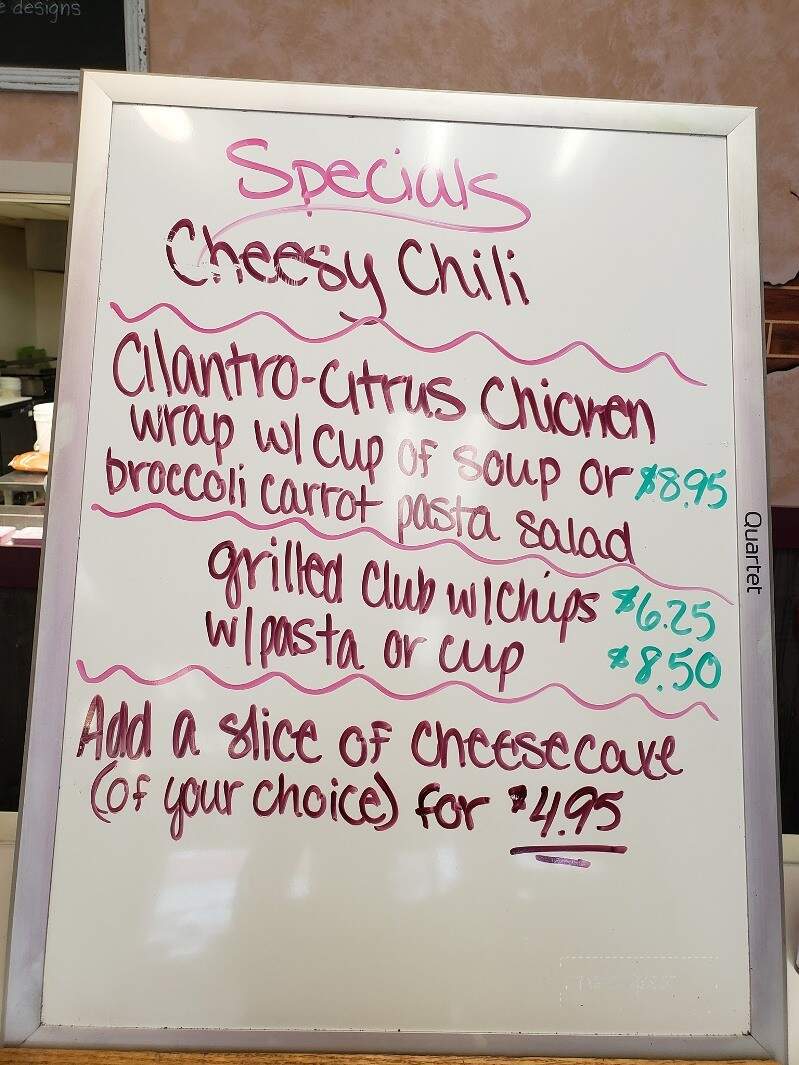 e designs
Specials
Cheesy Chili
Cilantro-Citrus Chicken
wrap w/ cup of soup or $8.95
broccoli carrot pasta salad
grilled club w/chips $6.25
w/pasta or cup $8.50
Add a slice of cheesecake
(of your choice) for $4.95
Quartet